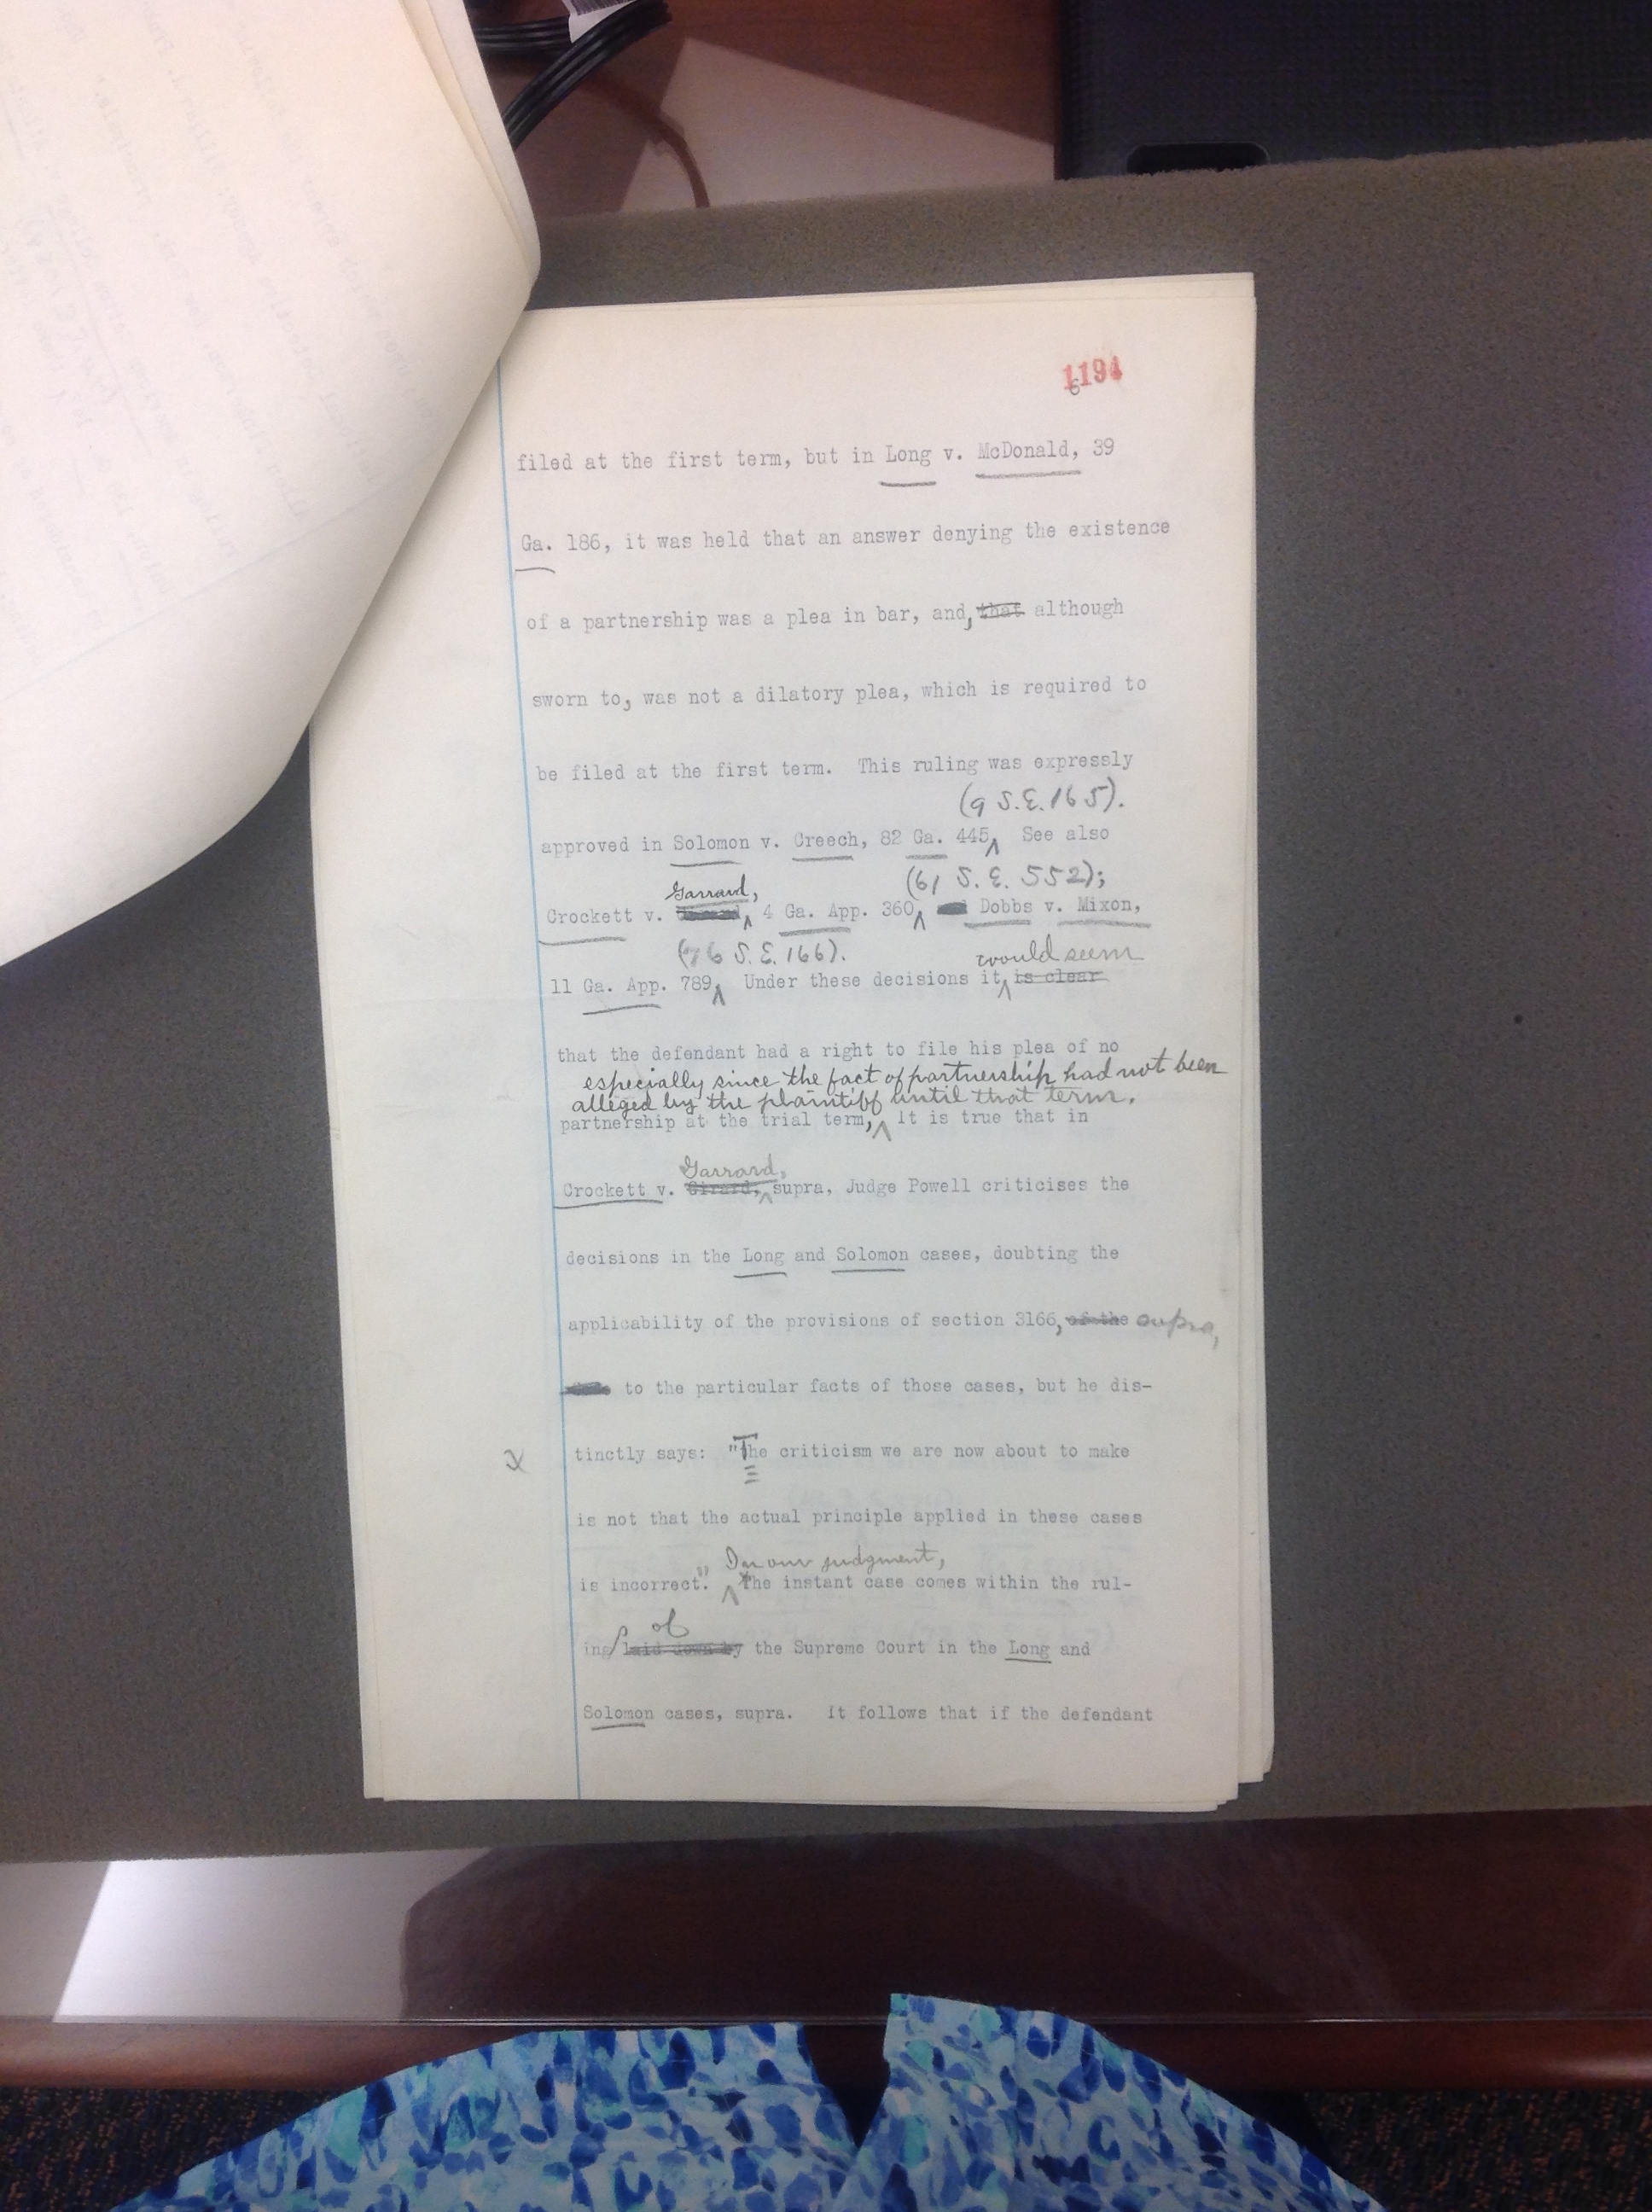 1194
6
filed at the first term, but in Long v. McDonald, 39
Ga. 186, it was held that an answer denying the existence
of a partnership was a plea in bar, and, that although
sworn to, was not a dilatory plea, which is required to
be filed at the first term. This ruling was expressly
(9 S.E. 165).
approved in Solomon v. Creech, 82 Ga. 445 See also
Garrard, (61 S.E. 552);
Crockett v. 4 Ga. App. 360 Dobbs v. Mixon,
(76 S.E. 166). would seem
11 Ga. App. 789 Under these decisions it is clear
that the defendant had a right to file his plea of no
especially since the fact of partnership had not been
alleged by the plaintiff until that term.
partnership at the trial term, It is true that in
Garrard,
Crockett v. Girard, supra, Judge Powell criticises the
decisions in the Long and Solomon cases, doubting the
applicability of the provisions of section 3166, of the supra,
to the particular facts of those cases, but he dis-
x tinctly says: "The criticism we are now about to make
is not that the actual principle applied in these cases
In our judgment,
is incorrect." the instant case comes within the rul-
of
ing laid down by the Supreme Court in the Long and
Solomon cases, supra. It follows that if the defendant